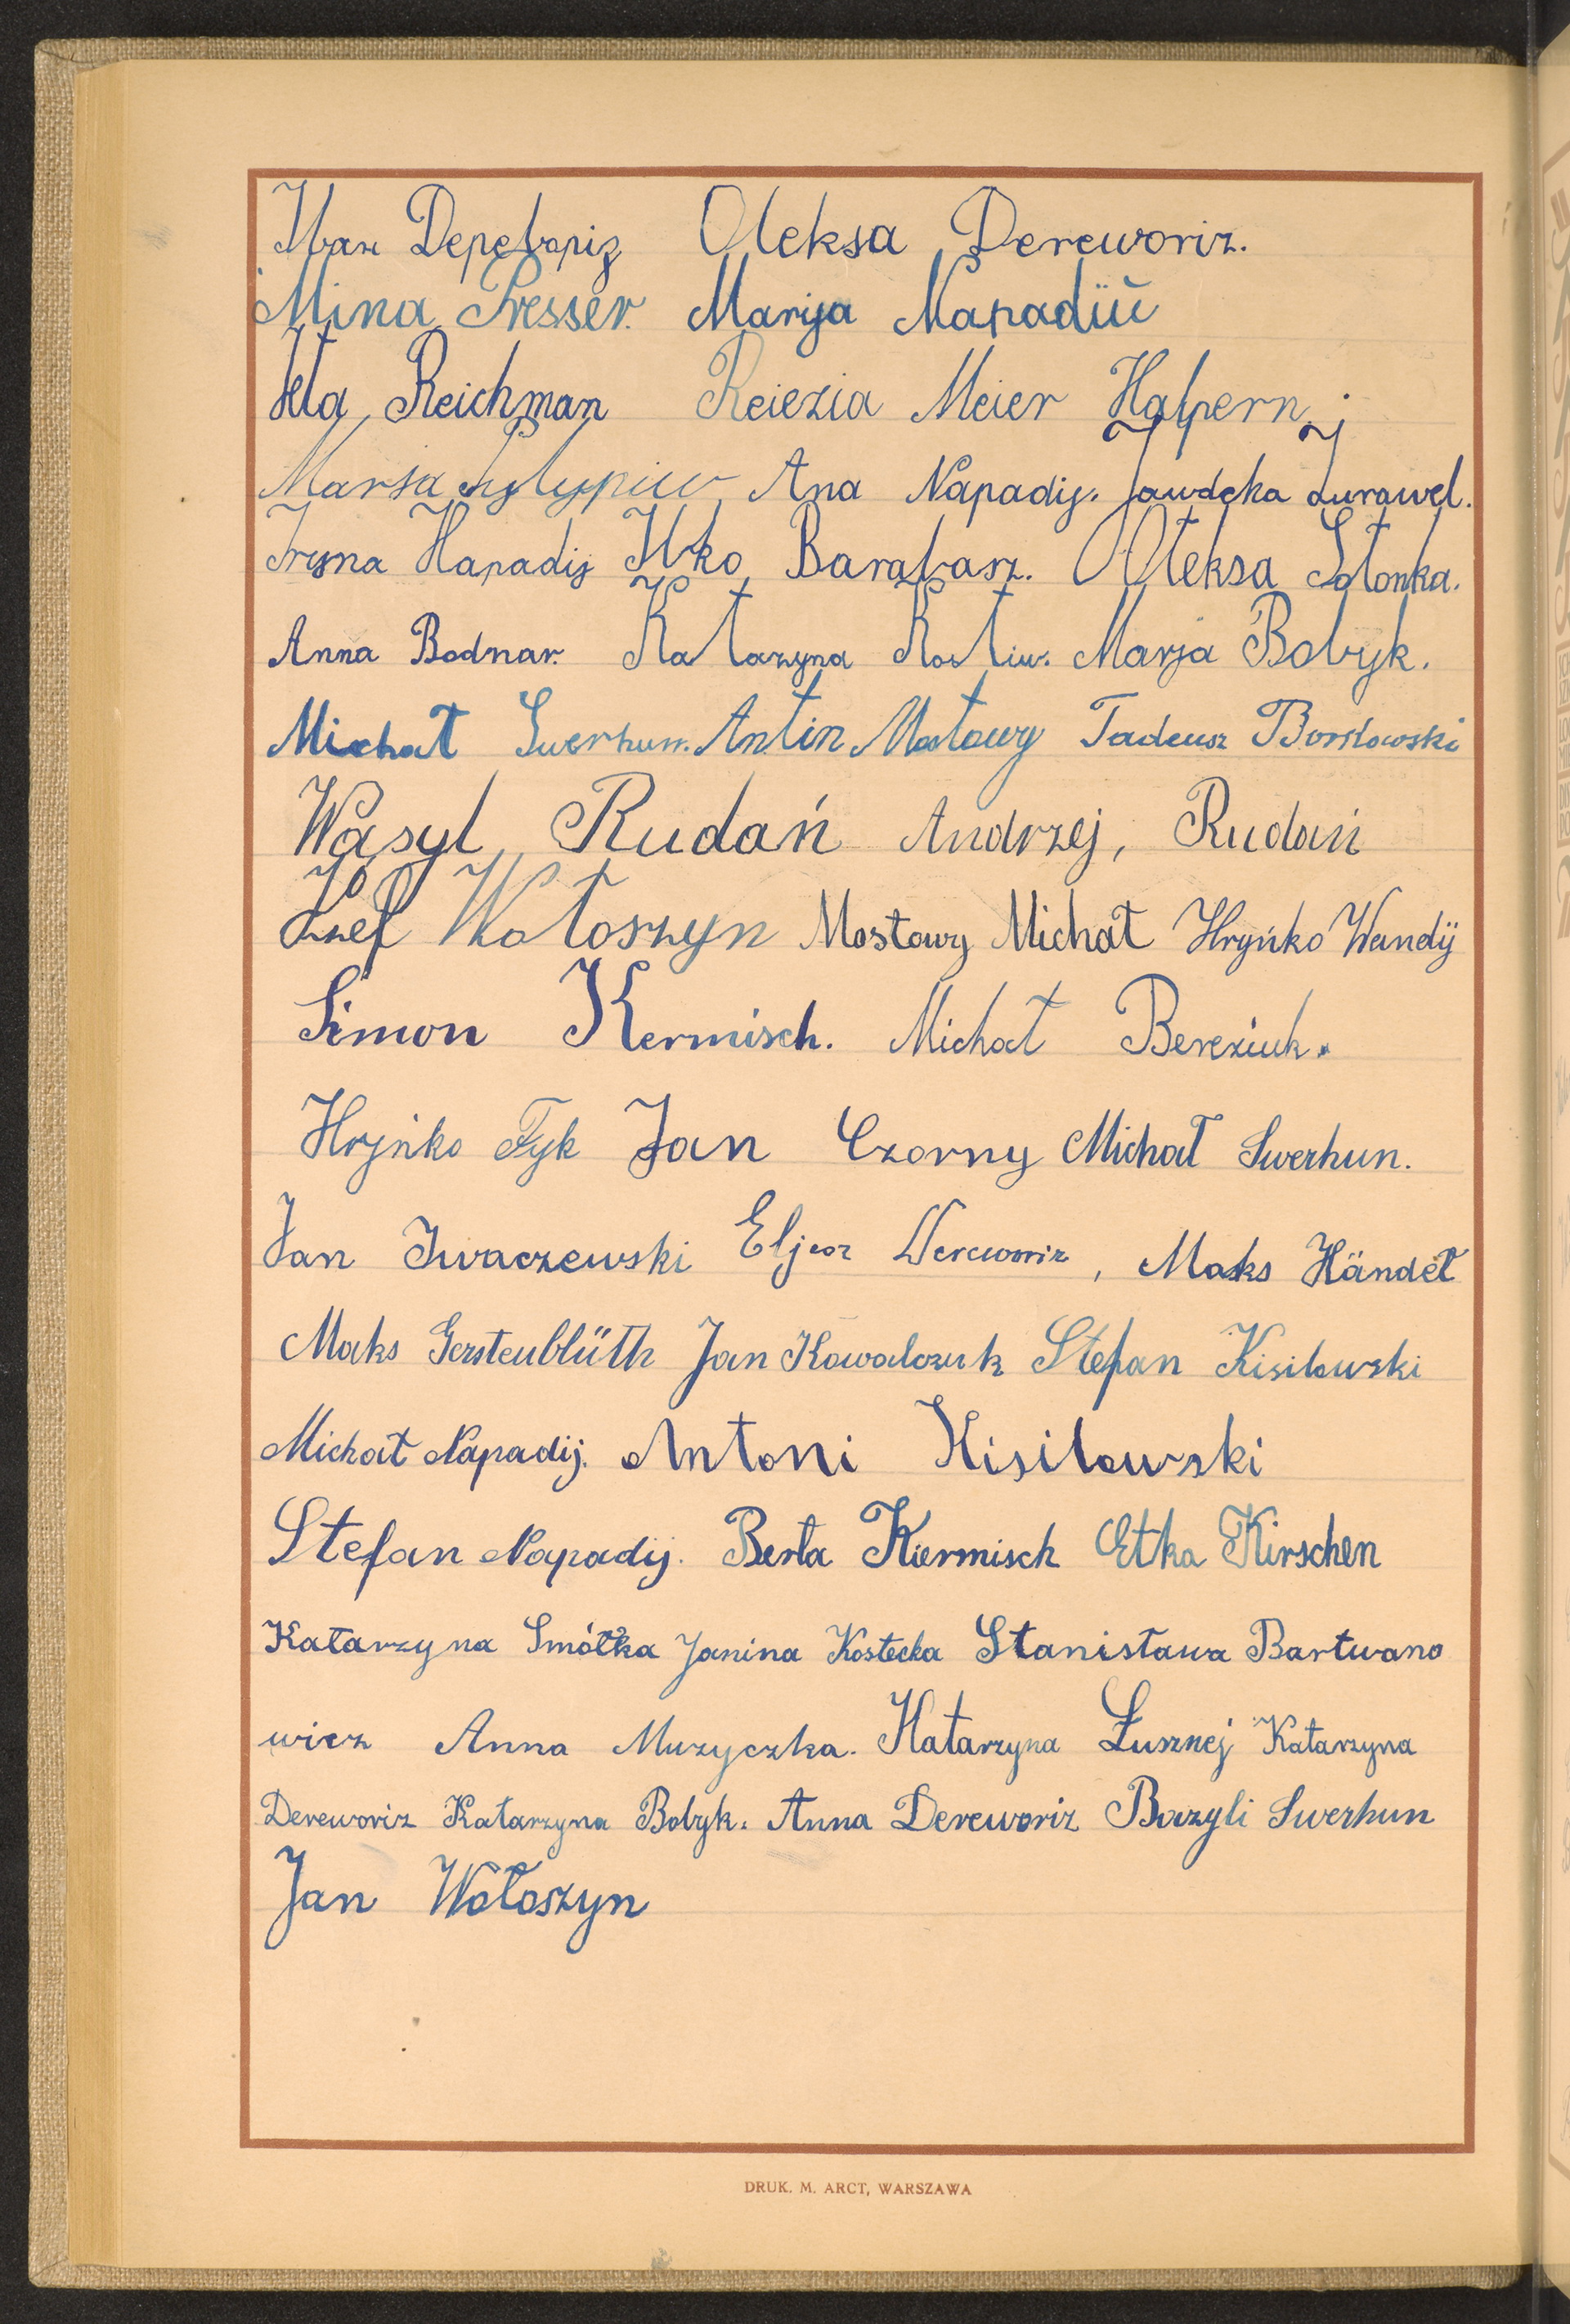 Іван Дереворіз Oleksa Dereworiz.
Mina Presser. Marija Napadïĭ
Ita Reichman Reiezia Meier Halpern
Marja Ana Napadij. Jawdcka Żurawel.
Irysna Hapadij Ilko Barabasz. Oleksa Sołonka.
Anna Bodnar. Katarzyna Kostiw. Marja Bobyk.
Michał Swerhun. Antin Mostowy Tadeusz Borsłowski
Wasyl Rudań Andrzej, Rudań
Józef Wołoszyn Mostowy Michał Hryńko Wandij
Simon Kermisch. Michał Bereziuk.
Hryńko Fyk Jan Czorny Michał Swerhun.
Jan Iwaczewski Eljasz Dereworiz, Maks Händel
Maks Gerstenblüth Jan Kowalczuk Stefan Kisilowski
Michał Napadij. Antoni Kisilowski
Stefan Napadij. Berta Kiermisch Etka Kirschen
Katarzyna Smółka Janina Kostecka Stanisława Bartwano
wicz Anna Muzyczka. Katarzyna Łusznej Katarzyna
Dereworiz Katarzyna Bobyk. Anna Dereworiz Bazyli Swerhun
Jan Wołoszyn
DRUK. M. ARCT, WARSZAWA